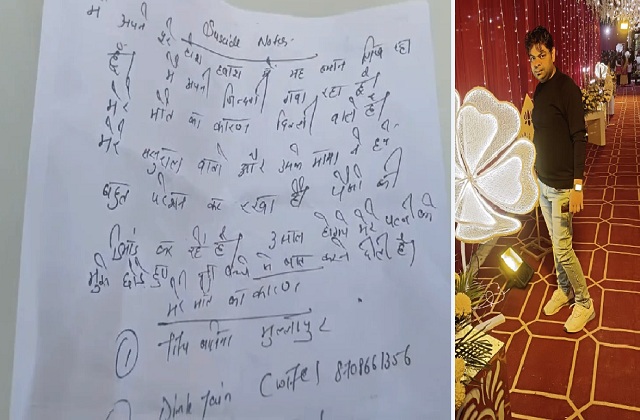 Suscide Notes
मै अपने पूरे होश हवास में यह ब्यान लिख रहा
हूँ। मै अपनी जिन्दगी गवा रहा हूँ।
मेरे मौत का कारण दिल्ली वाले है।
मेरे ससुराल वालो और उनके मामा ने हमे
बहुत परेशान कर रखा है। पैसो की
डिमांड कर रहे है। 3 साल होगये मेरे पत्नी को
मुझे छोडे हुए मेरी बच्चो से बात करने देती है।
मेरे मौत का कारण
① मुल्लापुर
Jain (wife) 8708661356